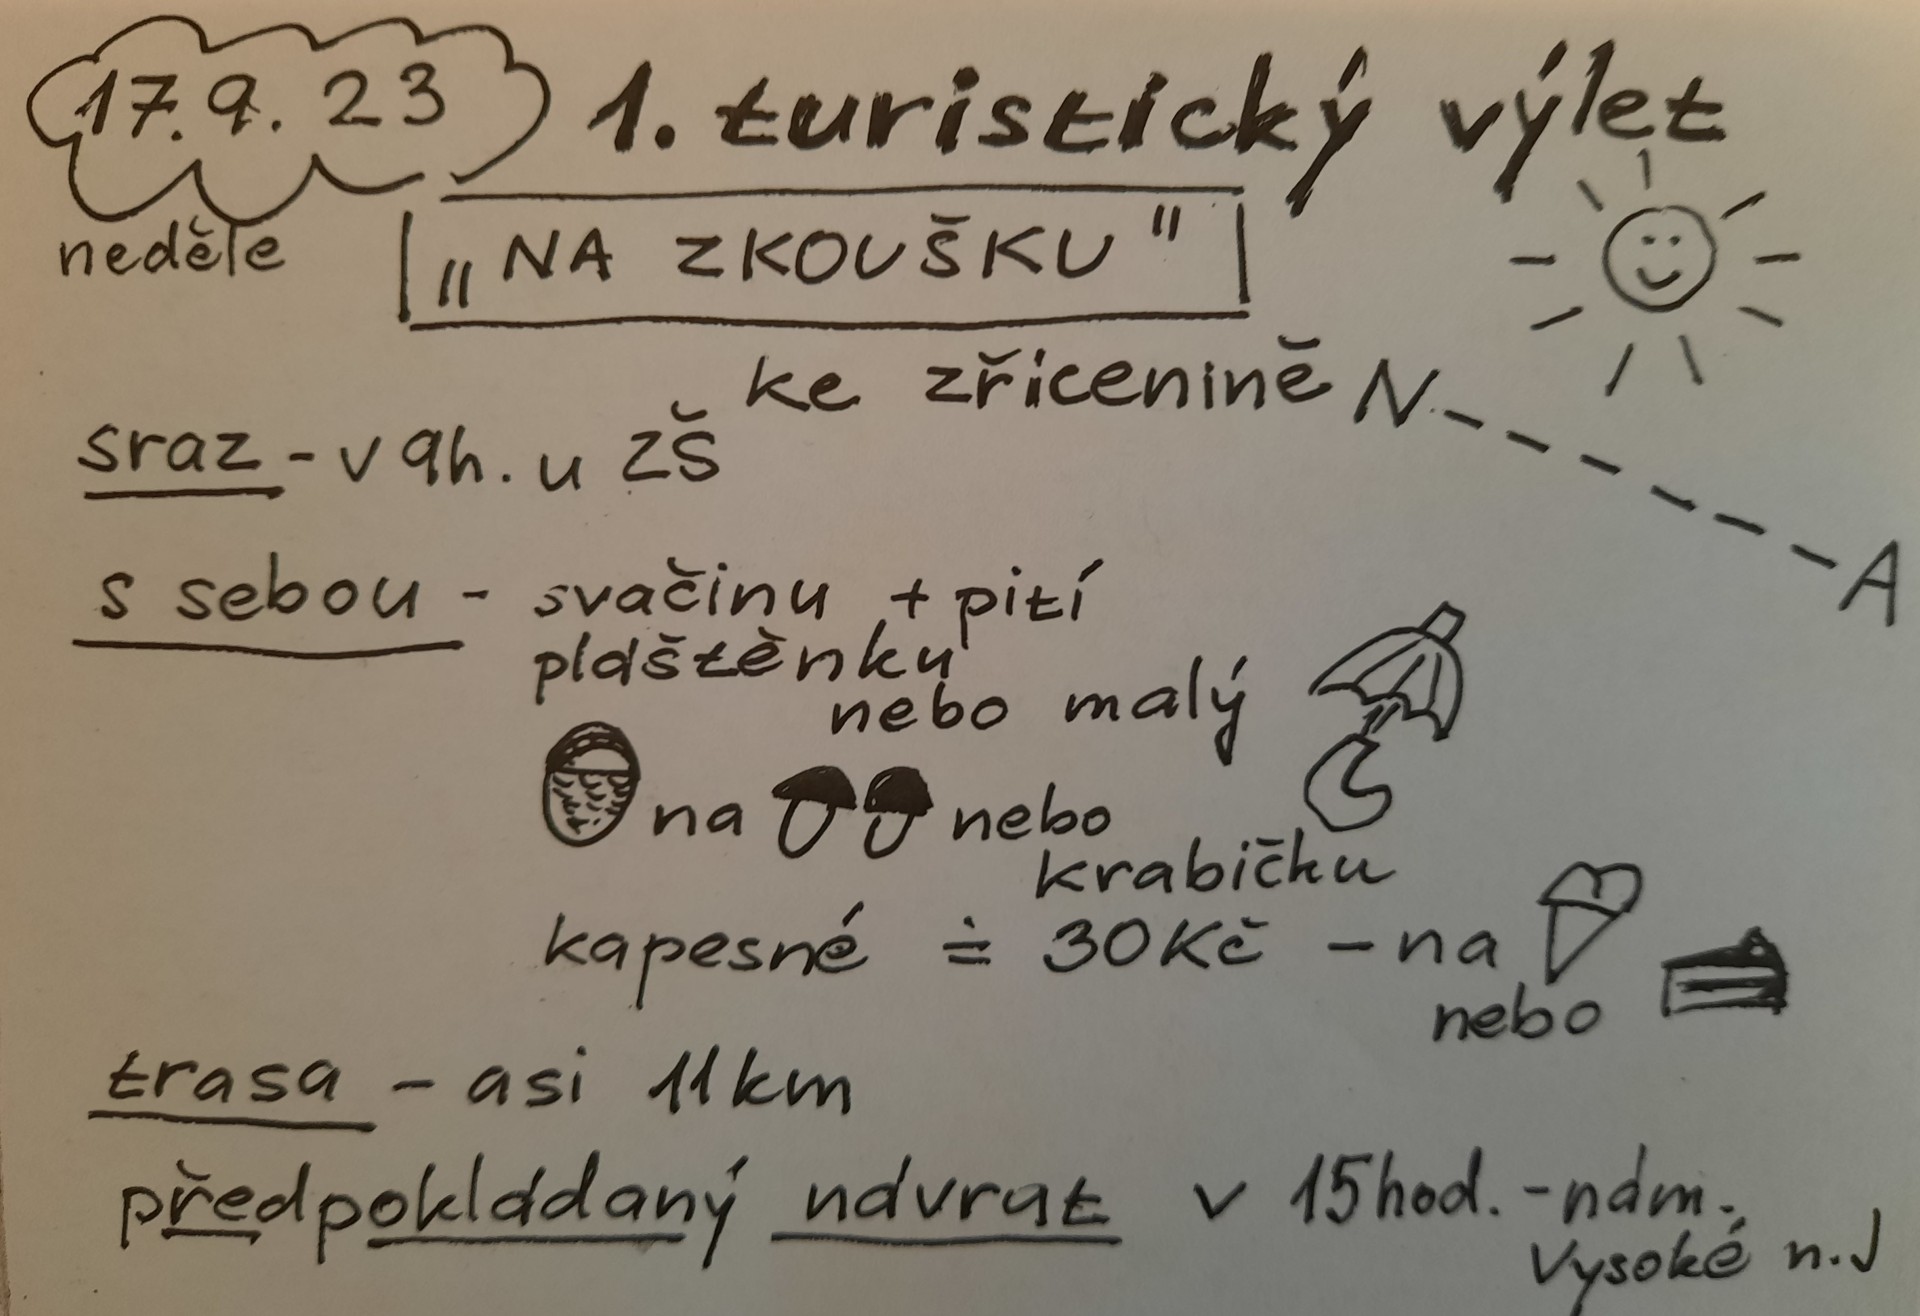 17.9.23 1. turistický výlet
neděle „NA ZKOUŠKU"
ke zřicenině N-----A
sraz - v 9h. u ZŠ
s sebou - svačinu + pití
pláštěnku
nebo malý
na nebo
krabičku
kapesné ≐ 30Kč - na
nebo
trasa - asi 11km
předpokládaný návrat v 15hod. - nám.
Vysoké n.J